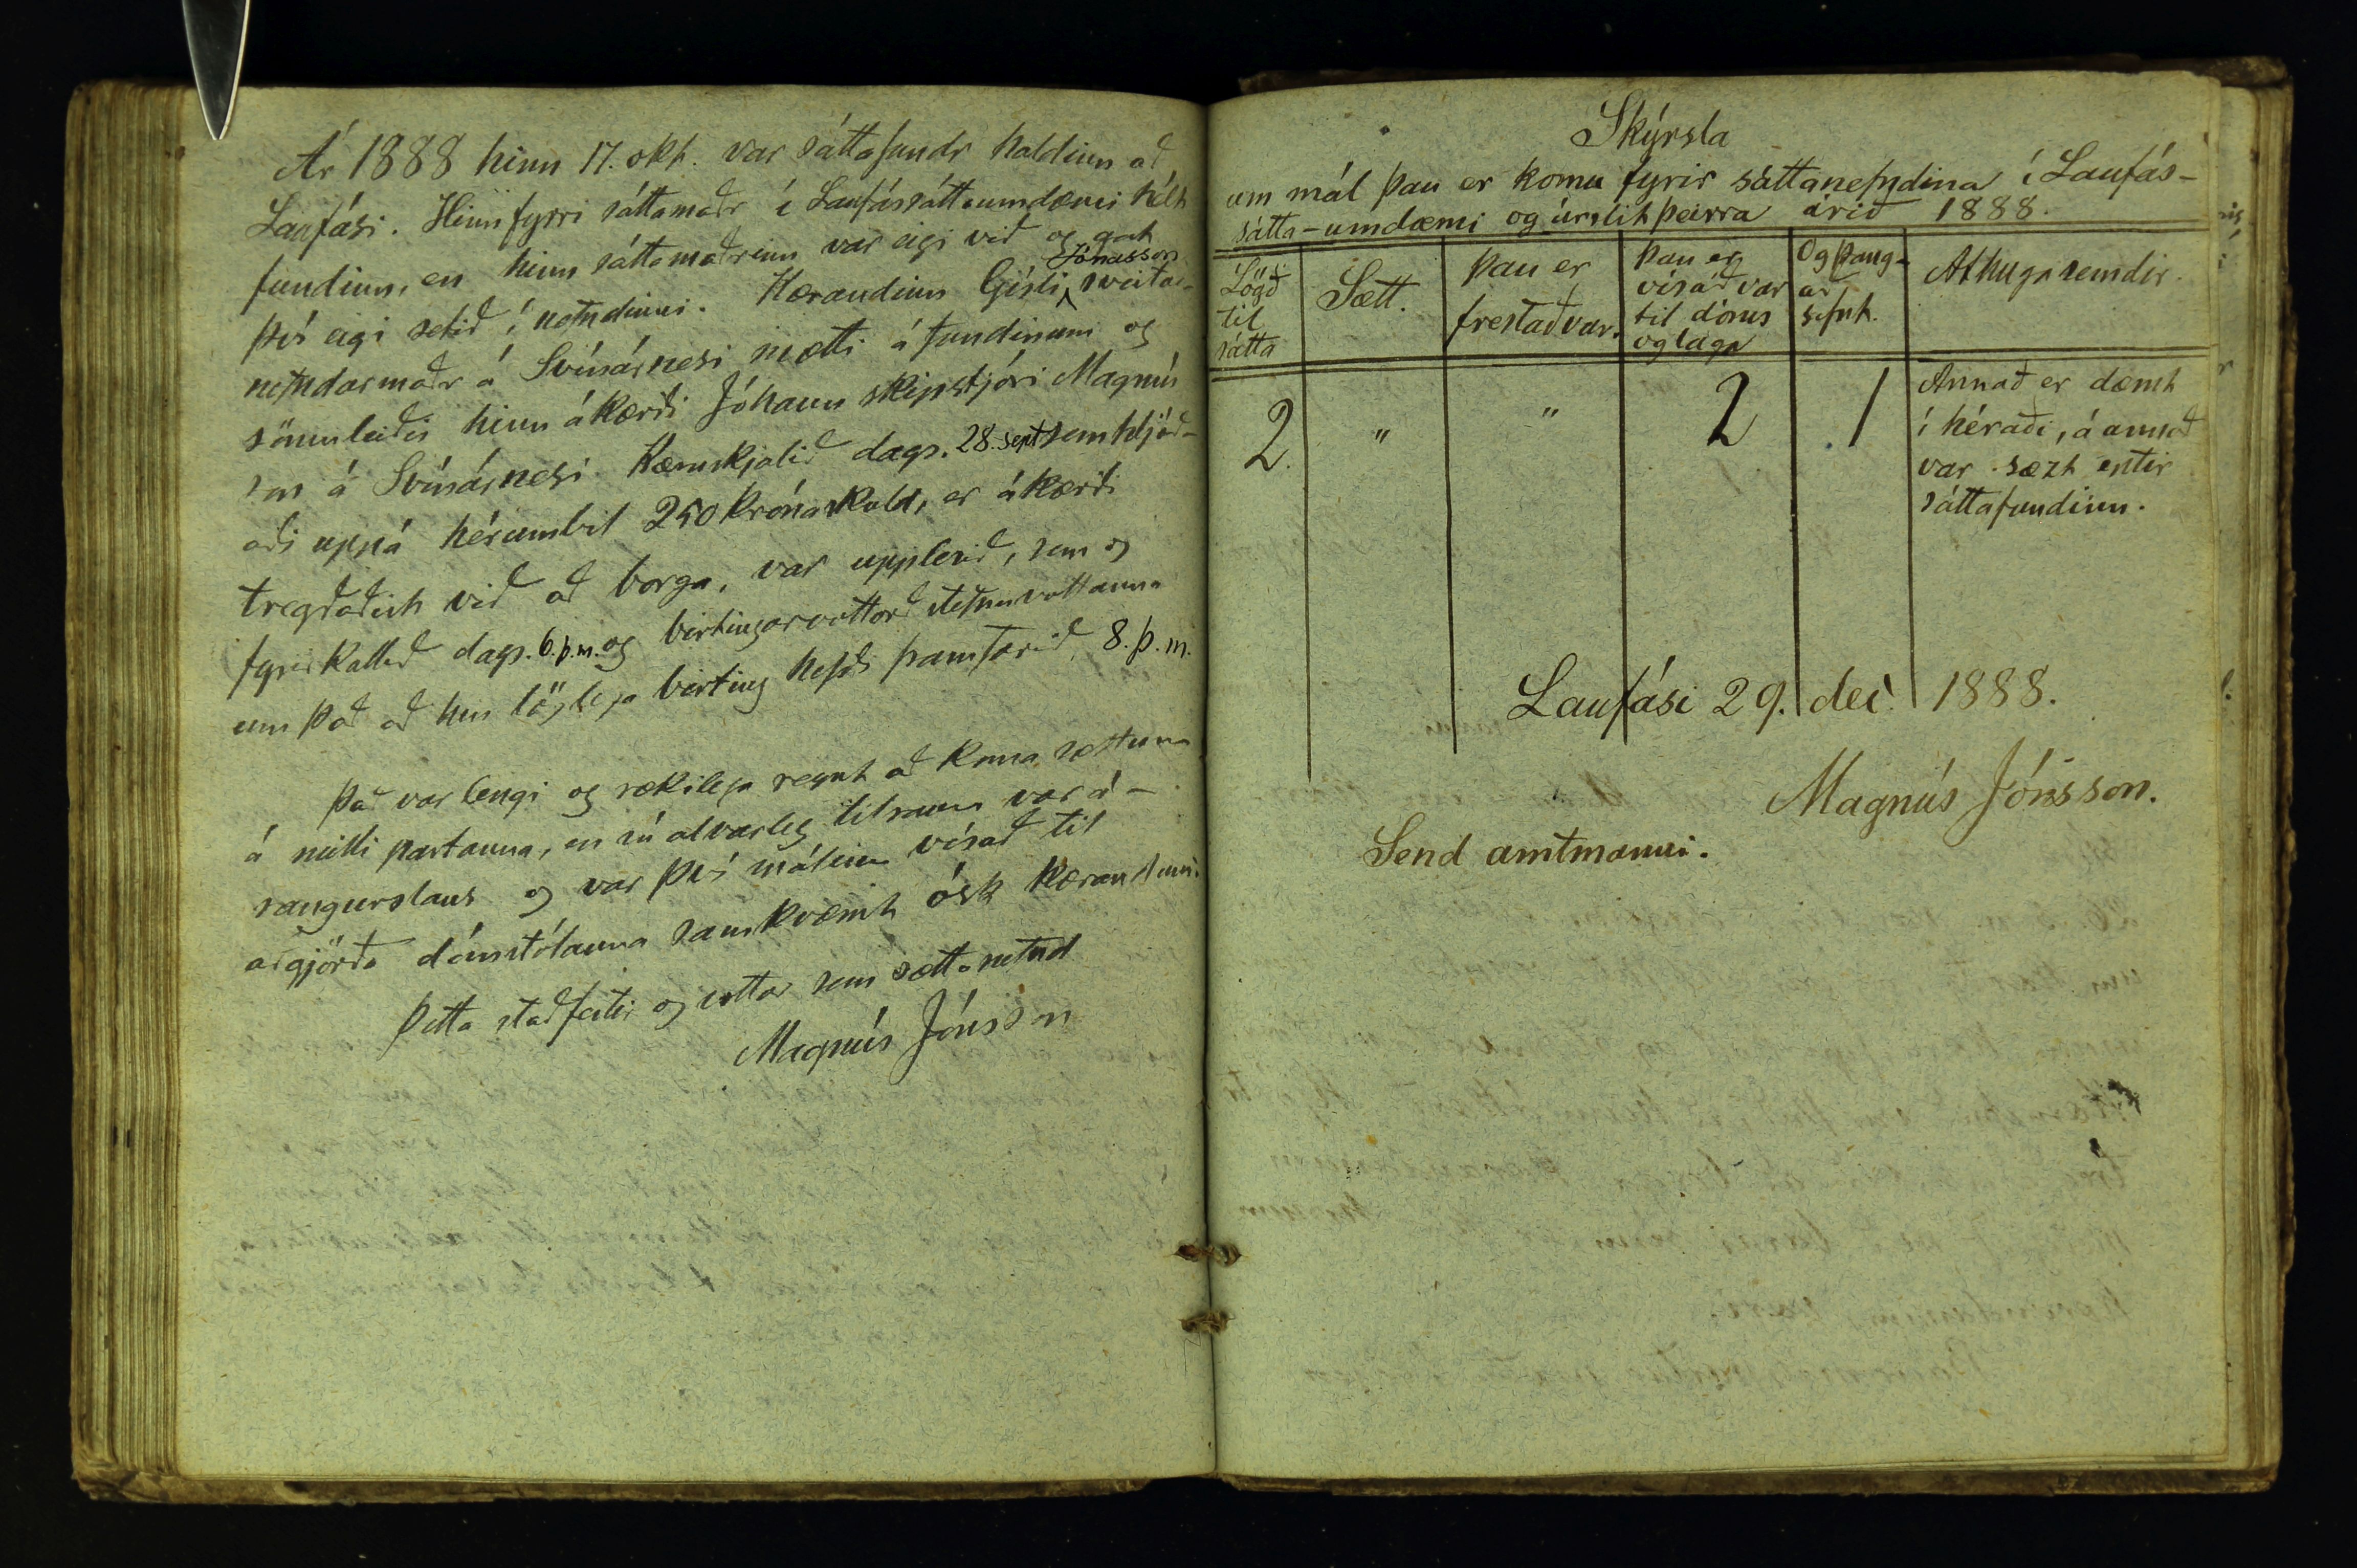 Ár 1888 hinn 17. okt. var sáttafundr haldinn að
Laufási. Hinn fyrri sáttamaðr í Laufássáttaumdæmi hélt
fundinn, en hinn sáttamaðrinn var eigi við og gat
því eigi setið í nefndinni. Kærandinn Gísli Jónasson sveitar-
nefndarmaðr á Svínárnesi mætti á fundinum og
sömuleiðis hinn ákærði Jóhann skipstjóri Magnús
son á Svínárnesi. Kæruskjalið dags. 28. sept sem hljóð-
aði uppá hérumbil 250 króna skuld, er ákærði
tregðaðist við að borga, var upplesið, sem og
fyrirkallið dags. 6. þ.m. og birtingarvottorð stefnuvottanna
um það að hin löglega birting hefði framfarið 8. þ. m.
Það var lengi og rækilega reynt að koma sættum
á milli partanna, en sú alvarleg tilraun var á-
rangurslaus og var því málinu vísað til
aðgjörða dómstólanna samkvæmt ósk kærandans.
Þetta staðfestir og vottar sem sáttanefnd
Magnús Jónsson
Skýrsla
um mál þau er komu fyrir sáttanefndina í Laufás-
sátta-umdæmi og úrslit þeirra árið 1888.
Lögð til sátta
Sætt.
Þau er frestað var.
Þau er vísað var til dóms og laga
Og þang-að stefnt.
Athugasemdir.
2. " " 2 1
Annað er dæmt
í héraði, á annað
var sæzt eptir
sáttafundinn.
Laufási 29. dec. 1888.
Magnús Jónsson.
Send amtmanni.